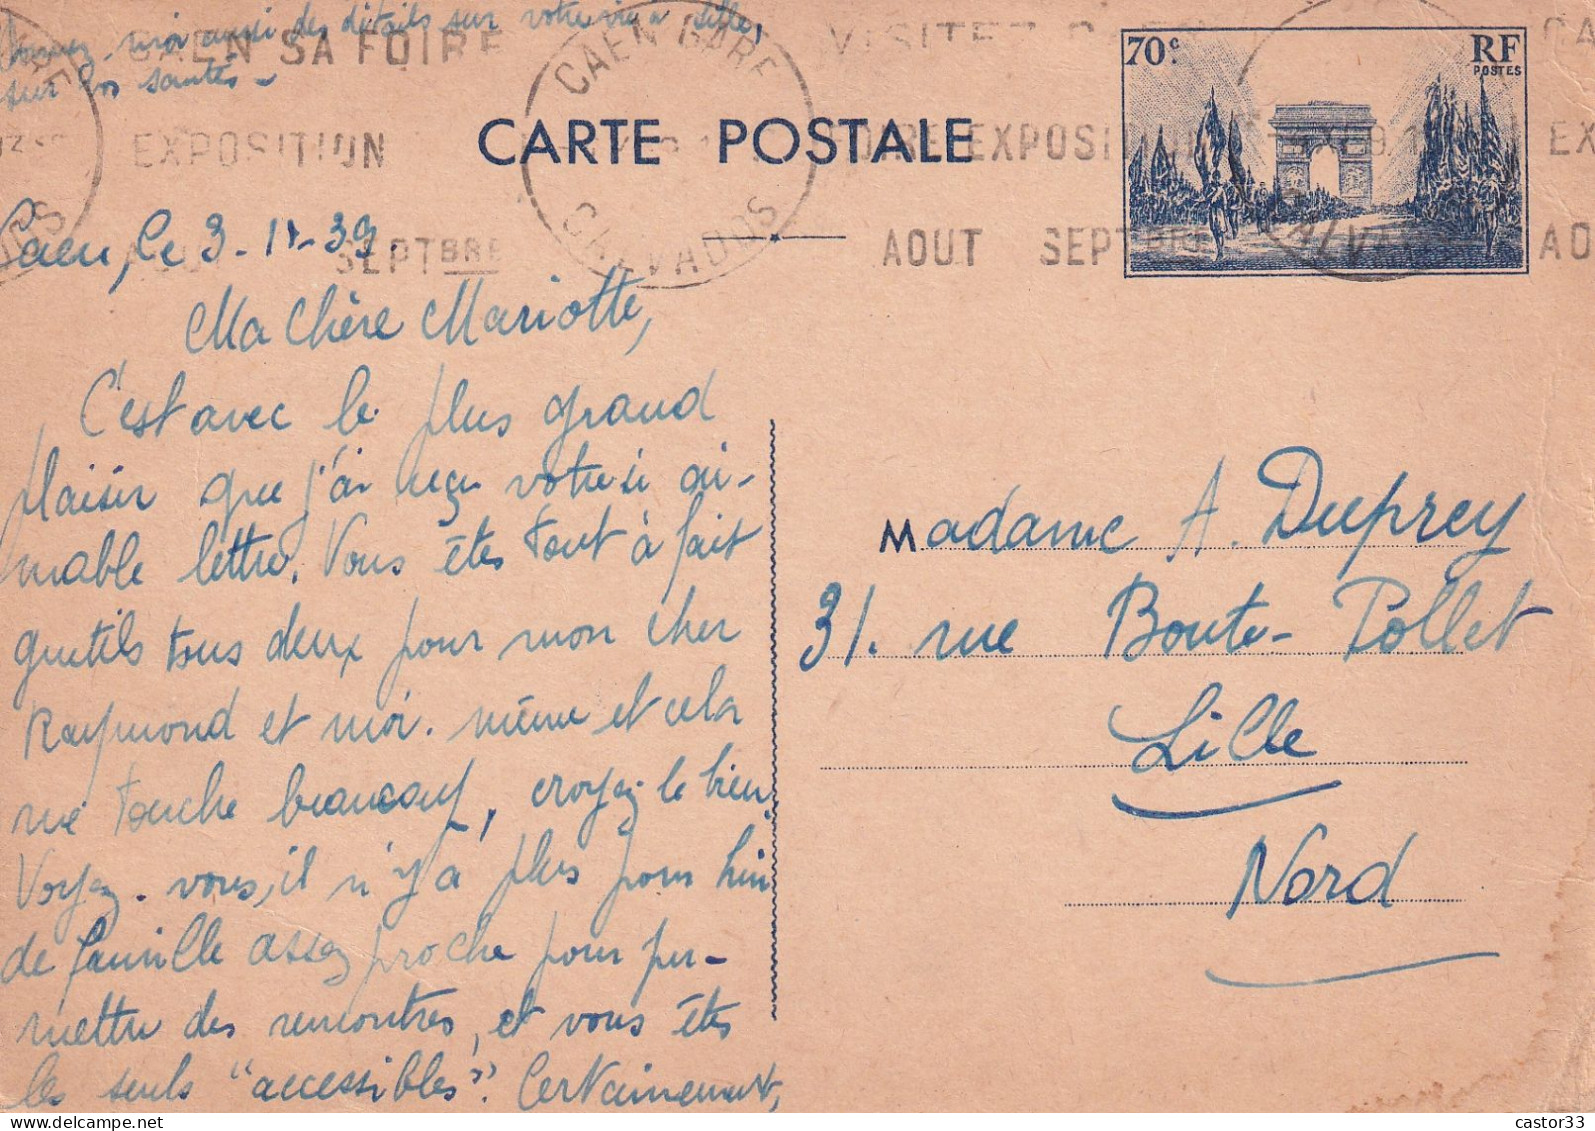 Donnez-moi aussi des détails sur votre vie à Lille,
sur vos santés -
CAEN SA FOIRE
EXPOSITION
AOUT SEPTBRE
CAEN GARE
CALVADOS
VISITEZ
FOIRE EXPOSITION
AOUT SEPTBRE
CARTE POSTALE
70c
RF
POSTES
CA
EX
AO
Caen, le 3-11-39
Ma Chère Mariotte,
C'est avec le plus grand
plaisir que j'ai reçu votre si ai-
mable lettre. Vous êtes tout à fait
gentils tous deux pour mon cher
Raymond et moi-même et cela
me touche beaucoup, croyez-le bien.
Voyez-vous, il n'y a plus pour lui
de famille assez proche pour per-
mettre des rencontres, et vous êtes
les seuls "accessibles". Certainement,
Madame A. Duprey
31. rue Boute-Pollet
Lille
Nord
castor33